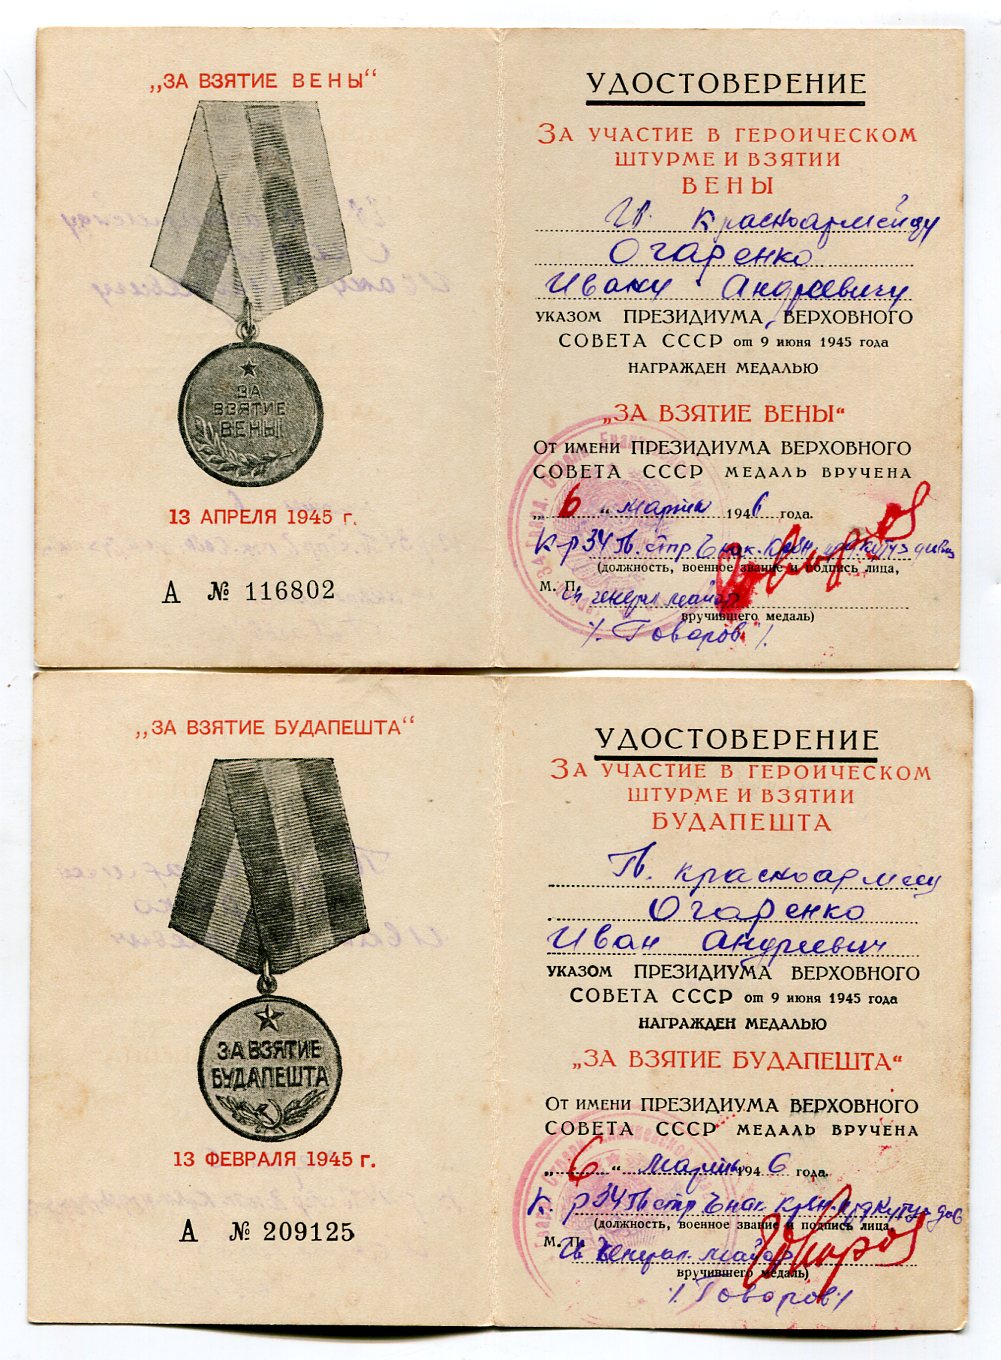 „ЗА ВЗЯТИЕ ВЕНЫ“
ЗА
ВЗЯТИЕ
ВЕНЫ
13 АПРЕЛЯ 1945 г.
А № 116802
УДОСТОВЕРЕНИЕ
ЗА УЧАСТИЕ В ГЕРОИЧЕСКОМ
ШТУРМЕ И ВЗЯТИИ
ВЕНЫ
Гв. Красноармейцу
Огаренко
Ивану Андреевичу
УКАЗОМ ПРЕЗИДИУМА ВЕРХОВНОГО
СОВЕТА СССР от 9 июня 1945 года
НАГРАЖДЕН МЕДАЛЬЮ
„ЗА ВЗЯТИЕ ВЕНЫ“
От имени ПРЕЗИДИУМА ВЕРХОВНОГО
СОВЕТА СССР МЕДАЛЬ ВРУЧЕНА
„6“ марта 1946 года.
К-р 34 Гв. стр. Енак. Крзн.
(должность, военное звание и подпись лица,
М. П.
Гв. генерал майор
вручившего медаль)
/. Говоров /.
„ЗА ВЗЯТИЕ БУДАПЕШТА“
ЗА ВЗЯТИЕ
БУДАПЕШТА
13 ФЕВРАЛЯ 1945 г.
А № 209125
УДОСТОВЕРЕНИЕ
ЗА УЧАСТИЕ В ГЕРОИЧЕСКОМ
ШТУРМЕ И ВЗЯТИИ
БУДАПЕШТА
Гв. красноармеец
Огаренко
Иван Андреевич
УКАЗОМ ПРЕЗИДИУМА ВЕРХОВНОГО
СОВЕТА СССР от 9 июня 1945 года
НАГРАЖДЕН МЕДАЛЬЮ
„ЗА ВЗЯТИЕ БУДАПЕШТА“
От имени ПРЕЗИДИУМА ВЕРХОВНОГО
СОВЕТА СССР МЕДАЛЬ ВРУЧЕНА
„6“ марта 1946 года.
К-р 34 Гв стр Енак. Крзн.
(должность, военное звание и подпись лица,
М. П.
Гв Генерал. майор
вручившего медаль)
/. Говоров /